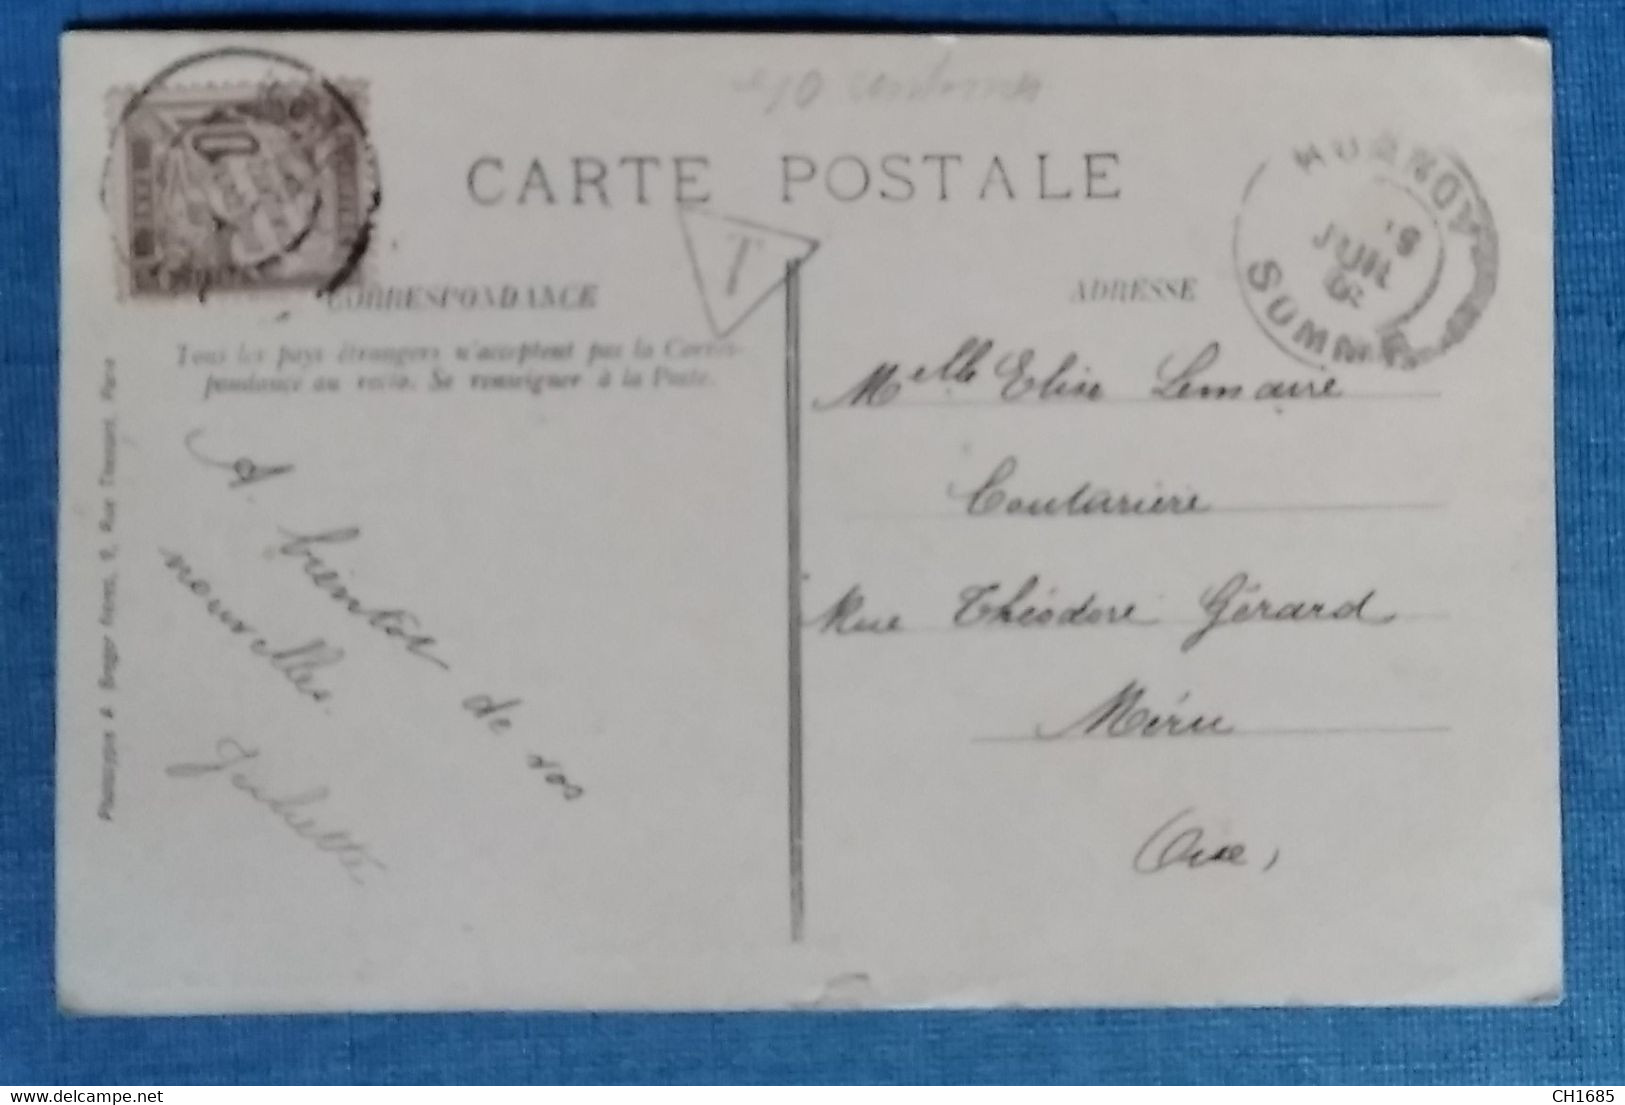 10 centimes
CARTE POSTALE
T
CORRESPONDANCE
Tous les pays étrangers n'acceptent pas la Corres-
pondance au recto. Se renseigner à la Poste.
A bientôt de vos
nouvelles.
Juliette
ADRESSE
HORNOY
JUIL
SOMME
Melle Elise Lemaire
Couturière
Rue Théodore Gérard
Méru
Oise,
Berger Frères, 9, Rue Thénard, Paris
delcampe.net
CH1685